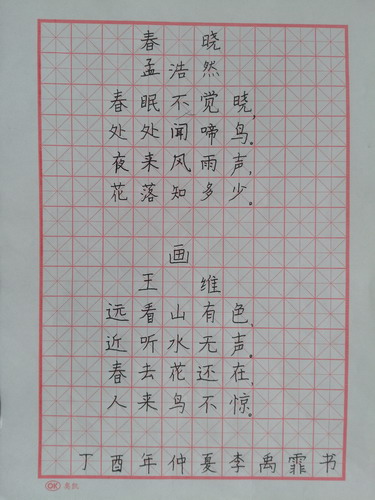 春 晓
孟浩然
春眠不觉晓，
处处闻啼鸟。
夜来风雨声，
花落知多少。
画
王 维
远看山有色，
近听水无声。
春去花还在，
人来鸟不惊。
丁酉年仲夏李禹霏书